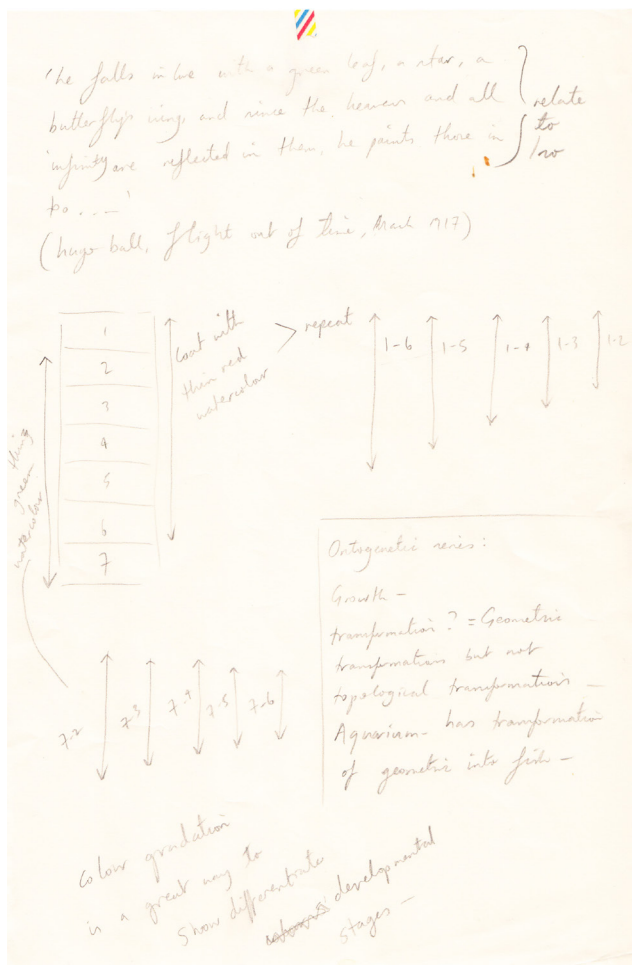 'he falls in love with a green leaf, a star, a
butterfly's wing, and since the heavens and all
infinity are reflected in them, he paints those in
to ....'
relate
to
(hugo ball, flight out of time, March 1917)
1
2
3
4
5
6
7
Coat with
thin red
watercolour
repeat
1-6
1-5
1-4
1-3
1-2
green
watercolour
7-2
7-3
7-4
7-5
7-6
Ontogenetic series:
Growth -
transformation? = Geometric
transformations but not
topological transformations -
Aquarium - has transformation
of geometric into fish -
colour gradation
is a great way to
show differentiates
developmental
stages -